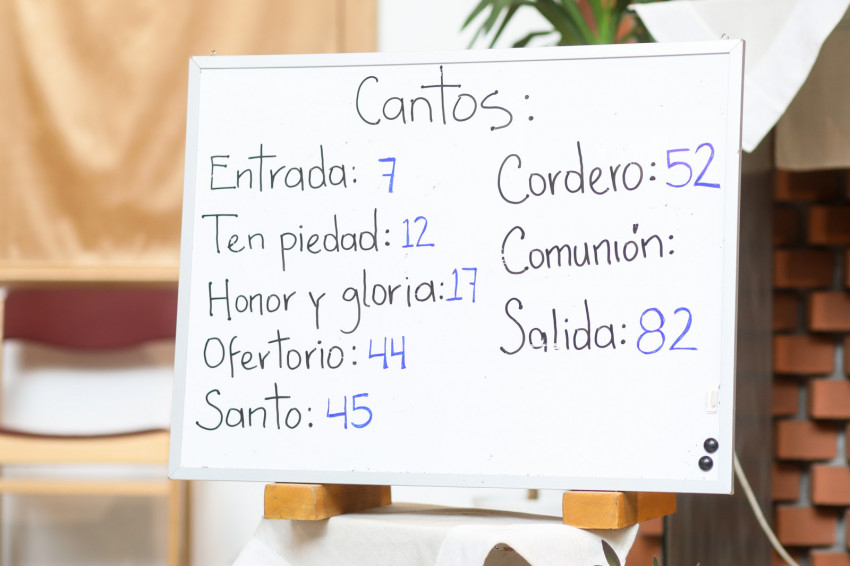 Cantos:
Entrada: 7
Ten piedad: 12
Honor y gloria: 17
Ofertorio: 44
Santo: 45
Cordero: 52
Comunión:
Salida: 82